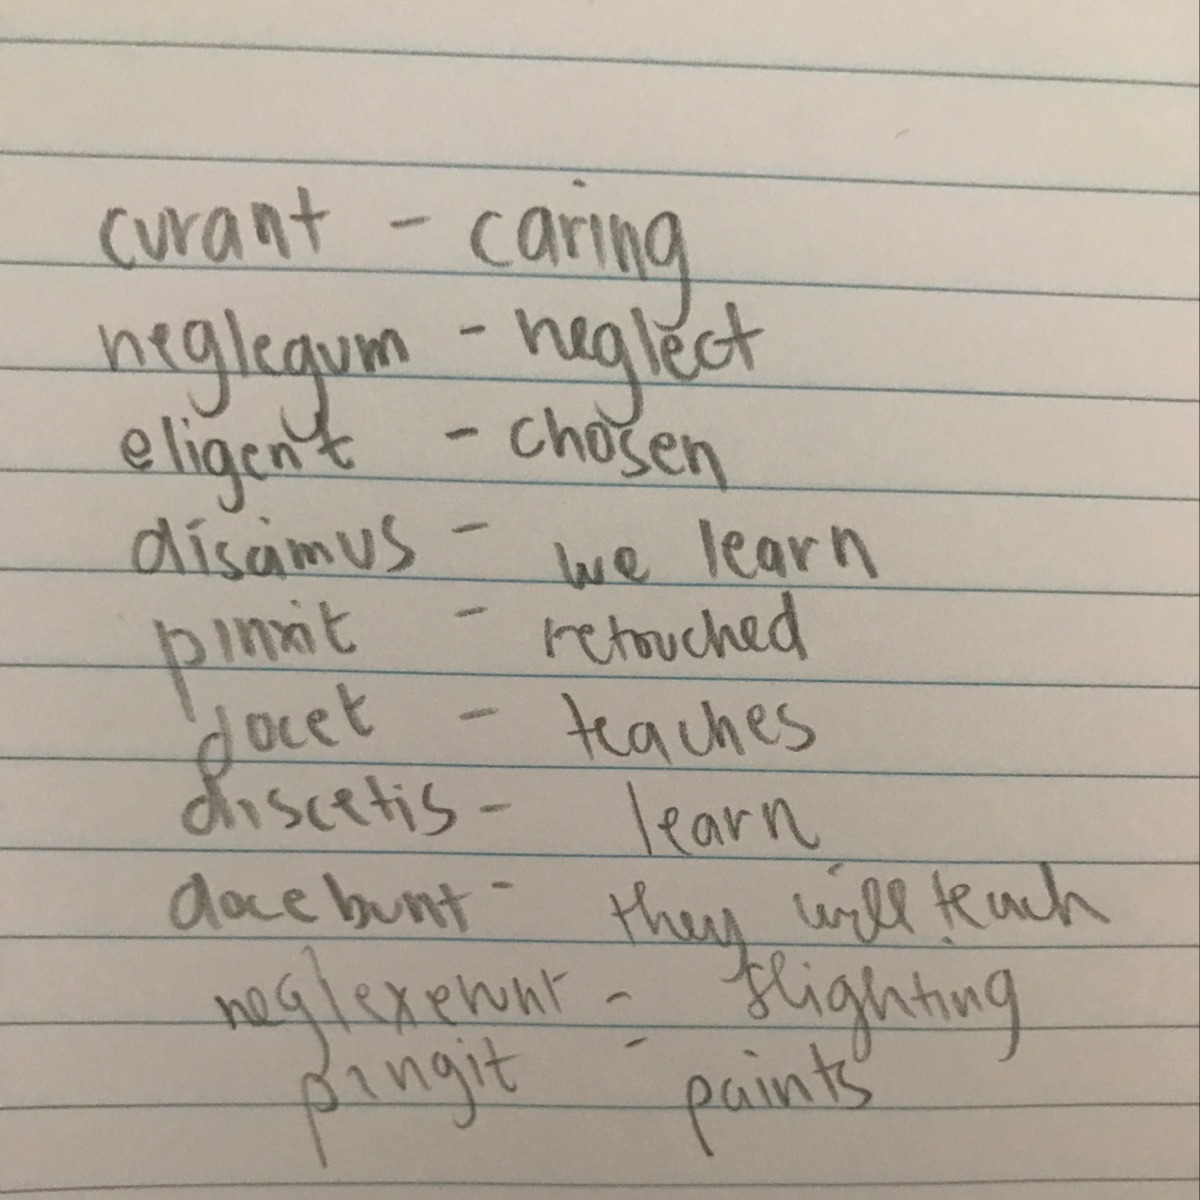 curant - caring
neglegum - neglect
eligent - chosen
discimus - we learn
pinxit - retouched
docet - teaches
discetis - learn
docebunt - they will teach
neglexerunt - slighting
pingit - paints